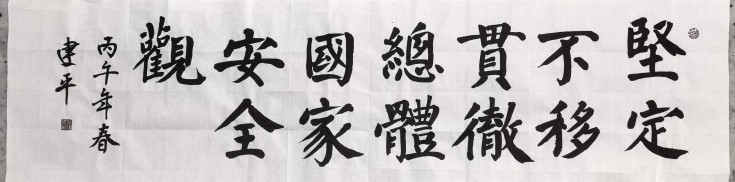 堅定
不移
貫徹
總體
國家
安全
觀
丙午年春
建平